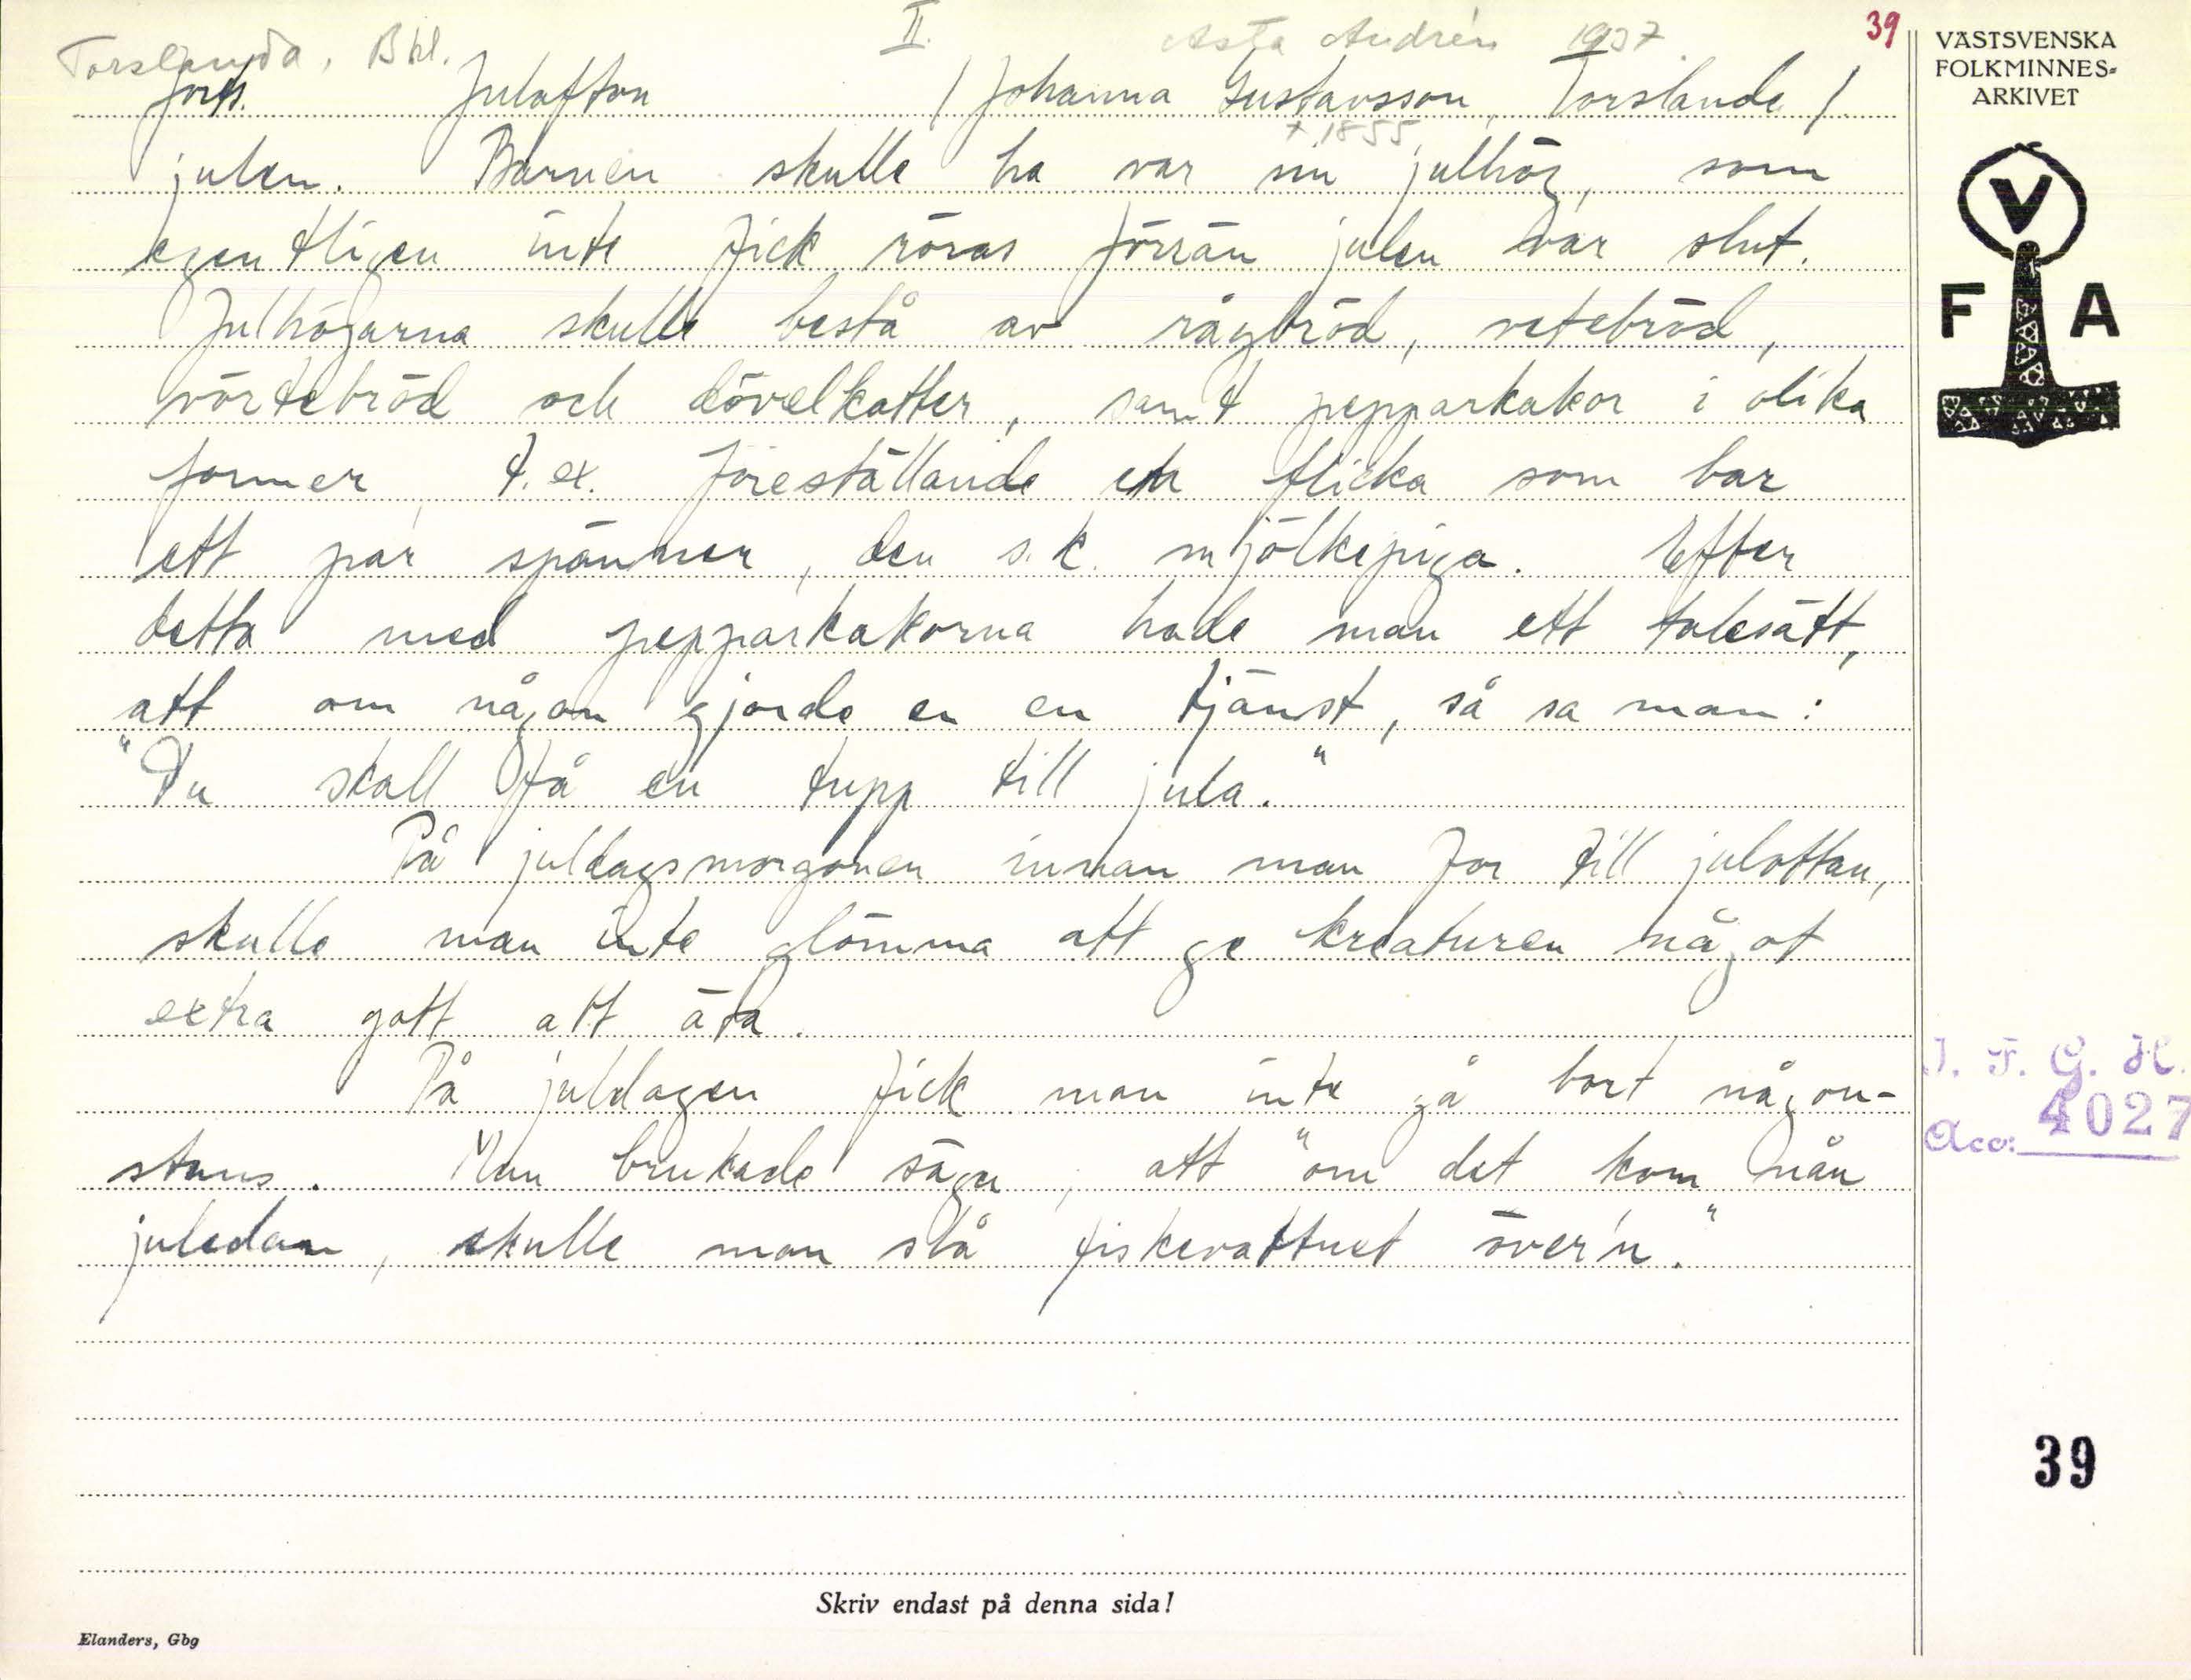 Torslanda, Bhl. II. Asta Andrén 1937. 39
forts. Julafton / Johanna Gustavsson, Torslanda /
* 1855
julen. Barnen skulle ha var sin julhög, som
egentligen inte fick röras förrän julen var slut.
Julhögarna skulle bestå av rågbröd, vetebröd,
vörtebröd och dövelkatter, samt pepparkakor i olika
former, t.ex. föreställande en flicka som bar
ett par spänner, den s.k. mjölkepiga. Efter
detta med pepparkakorna hade man ett talesätt,
att om någon gjorde en en tjänst, så sa man:
"Du skall få en tupp till jula."
På juldagsmorgonen innan man for till julottan,
skulle man inte glömma att ge kreaturen något
extra gott att äta.
På juldagen fick man inte gå bort någon-
stans. Man brukade säga, att "om det kom nån
juledan, skulle man slå fiskevattnet över'n."
Skriv endast på denna sida!
Elanders, Gbg
VÄSTSVENSKA
FOLKMINNES-
ARKIVET
V
F A
I. F. G. H.
Acc: 4027
39